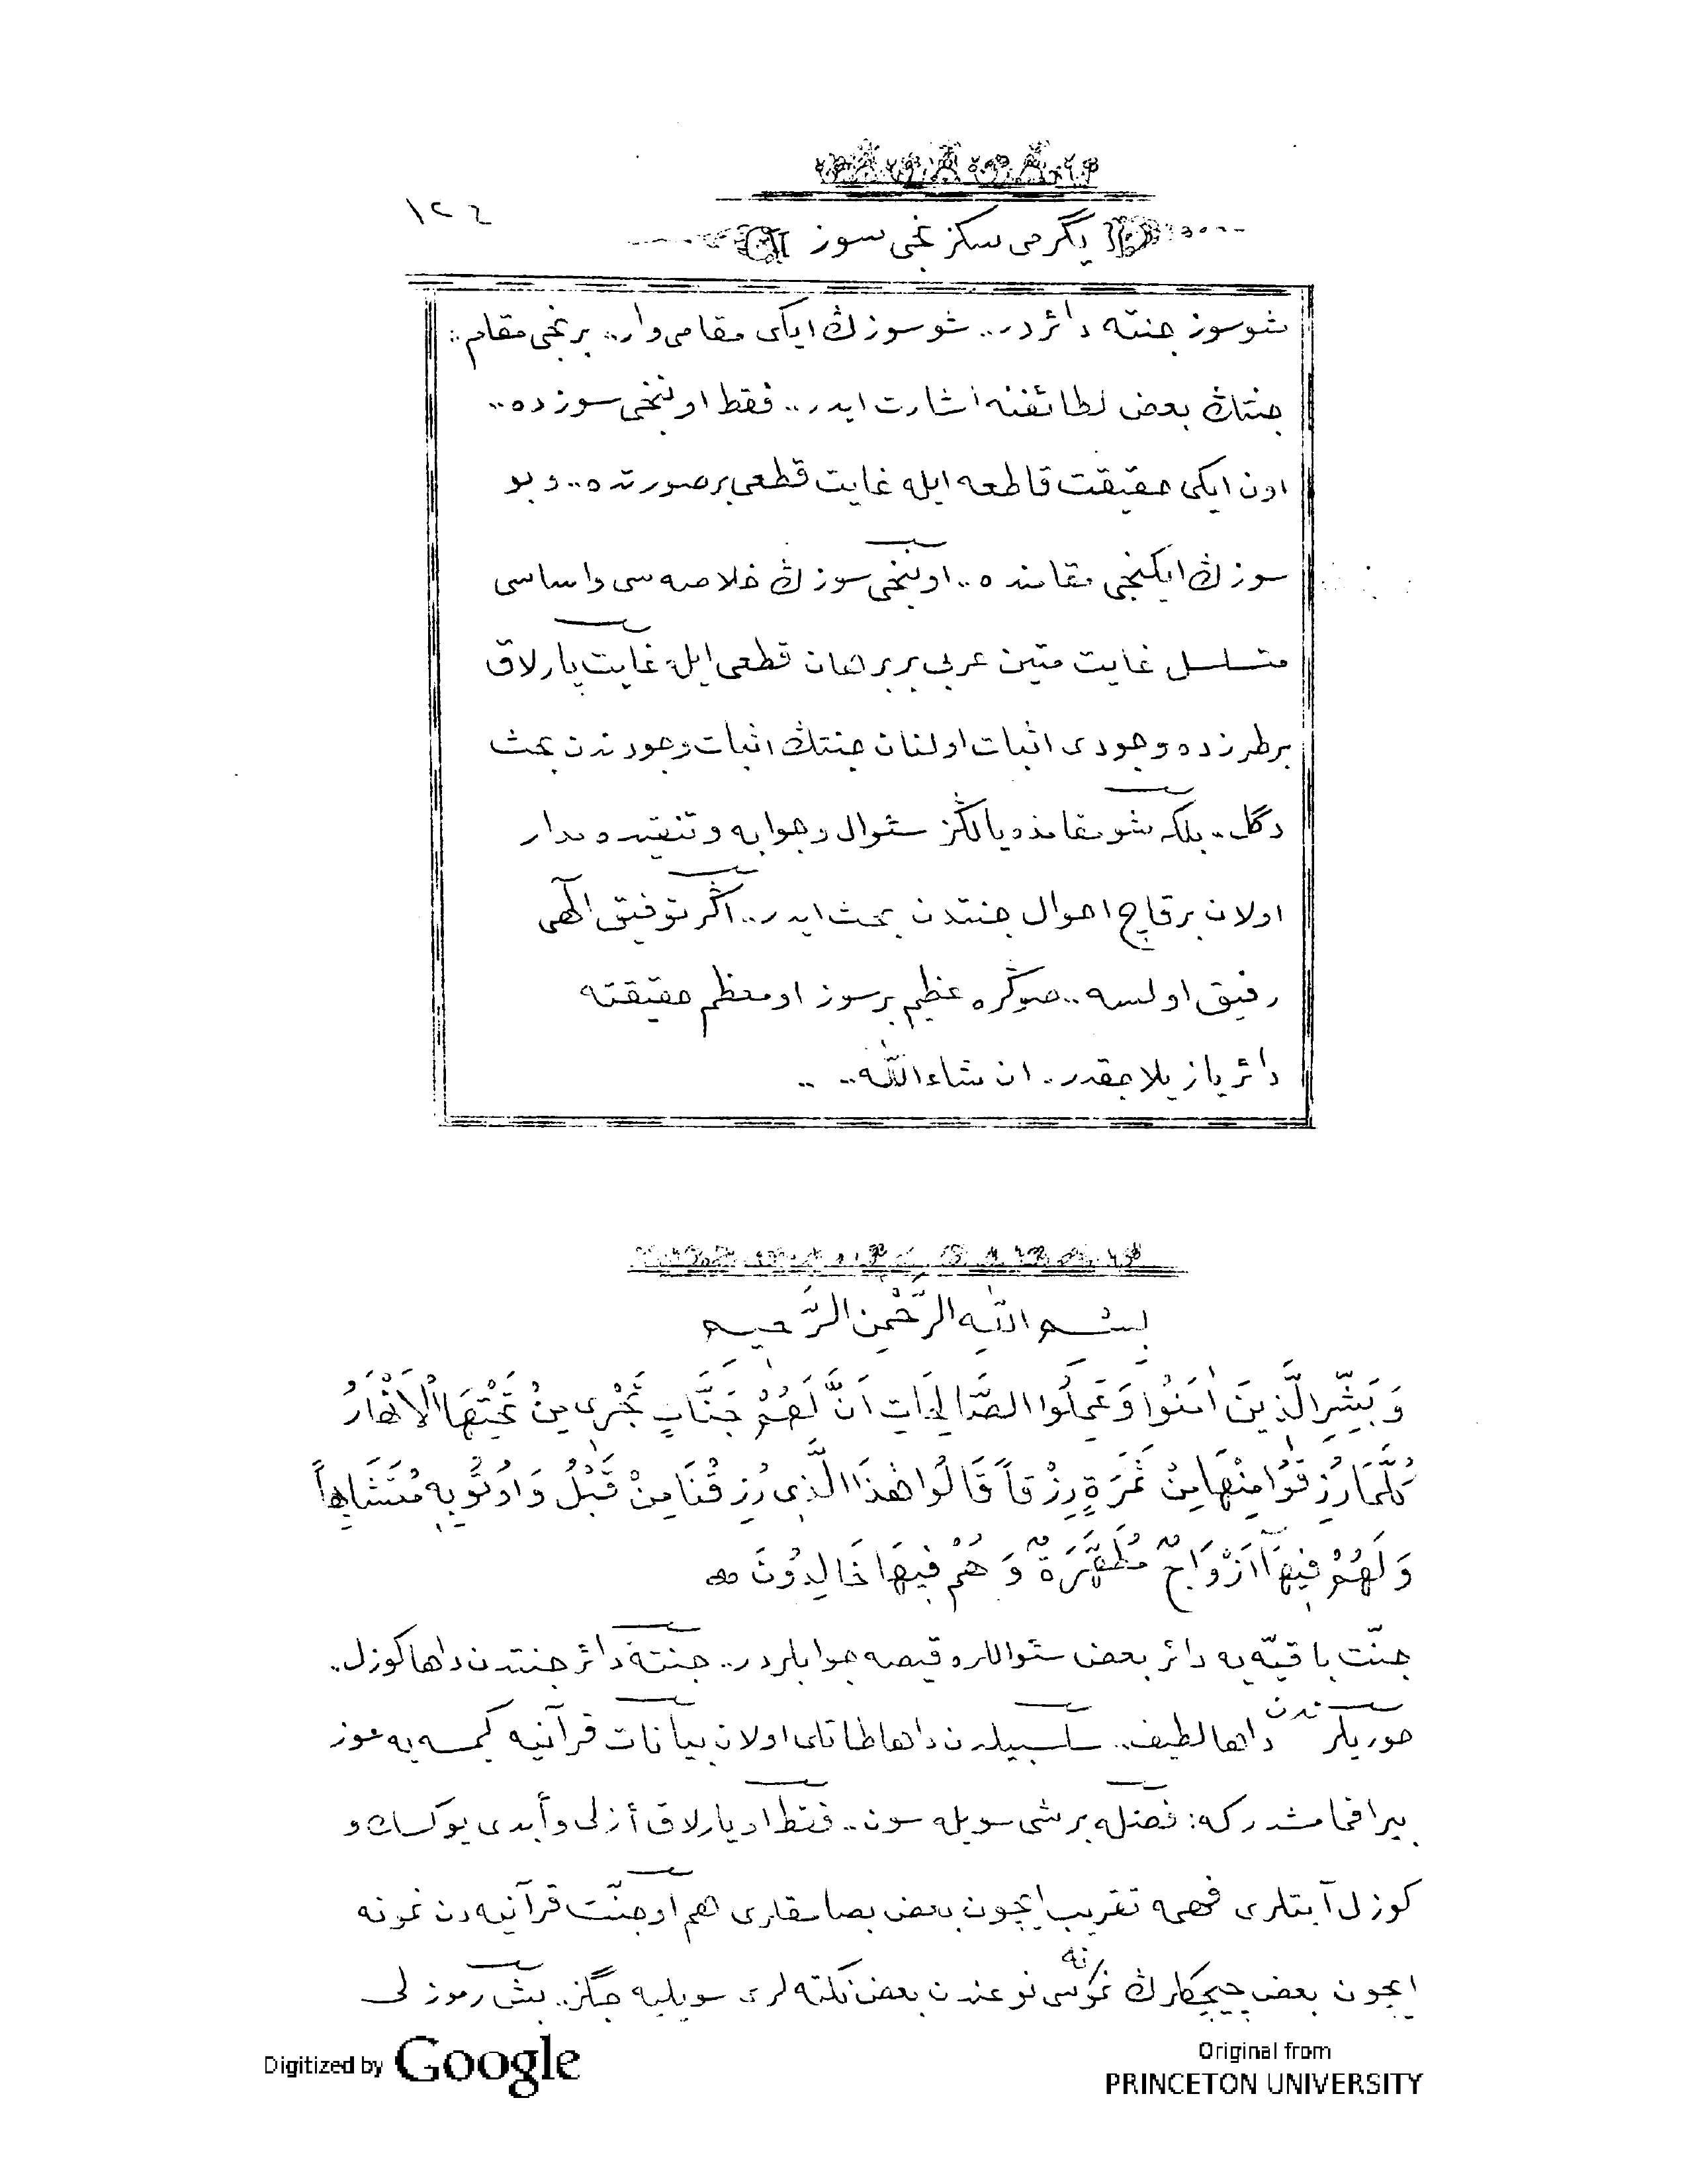 ١٢٤
يگرمی سكزنجی سوز
شو سوز جنته دائردر.. شو سوزڭ ایكی مقامی وار.. برنجی مقام:
جنتڭ بعض لطائفنه اشارت ایدر.. فقط اوننجی سوزده..
اون ایكی حقیقت قاطعه ایله غایت قطعی بر صورتده.. و بو
سوزڭ ایكنجی مقامنده.. اوننجی سوزڭ خلاصه سی و اساسی
متسلسل غایت متین عربی بر برهان قطعی ایله غایت پارلاق
بر طرزده وجودی اثبات اولنان جنتڭ اثبات وجودندن بحث
دگل.. بلكه شو مقامده یالڭز سئوال و جوابه و تنقیده مدار
اولان بر قاچ احوال جنتدن بحث ایدر.. اگر توفیق الٓهی
رفیق اولسه.. صوڭره عظیم بر سوز او معظم حقیقته
دائر یازیلاجقدر. ان شاء اللّٰه.. ..
بِسْمِ اللّٰهِ الرَّحْمٰنِ الرَّحِیمِ
وَبَشِّرِ الَّذِینَ اٰمَنُوا وَعَمِلُوا الصَّالِحَاتِ اَنَّ لَهُمْ جَنَّاتٍ تَجْرِی مِنْ تَحْتِهَا الْاَنْهَارُ
كُلَّمَا رُزِقُوا مِنْهَا مِنْ ثَمَرَةٍ رِزْقاً قَالُوا هٰذَا الَّذِی رُزِقْنَا مِنْ قَبْلُ وَاُوتُوا بِهِ مُتَشَابِهاً
وَلَهُمْ فِیهَٓا اَزْوَاجٌ مُطَهَّرَةٌ وَهُمْ فِیهَا خَالِدُونَ
جنّت باقیّه یه دائر بعض سئوالاره قیصه جوابلردر.. جنته دائر جنتدن داها گوزل..
حوریلرندن داها لطیف.. سلسبیلدن داها طاتلی اولان بیانات قرآنیه كیمسه یه سوز
بیراقمامشدر كه: فضله بر شی سویله سون.. فقط او پارلاق أزلی و أبدی یوكسك و
گوزل آیتلری فهمه تقریب ایچون بعض بصامقلری هم او جنّت قرآنیه دن نمونه
ایچون بعض چیچكلرڭ نمونه سی نوعندن بعض نكته لری سویلیه جگز.. بش رموزلی
Digitized by Google
Original from
PRINCETON UNIVERSITY